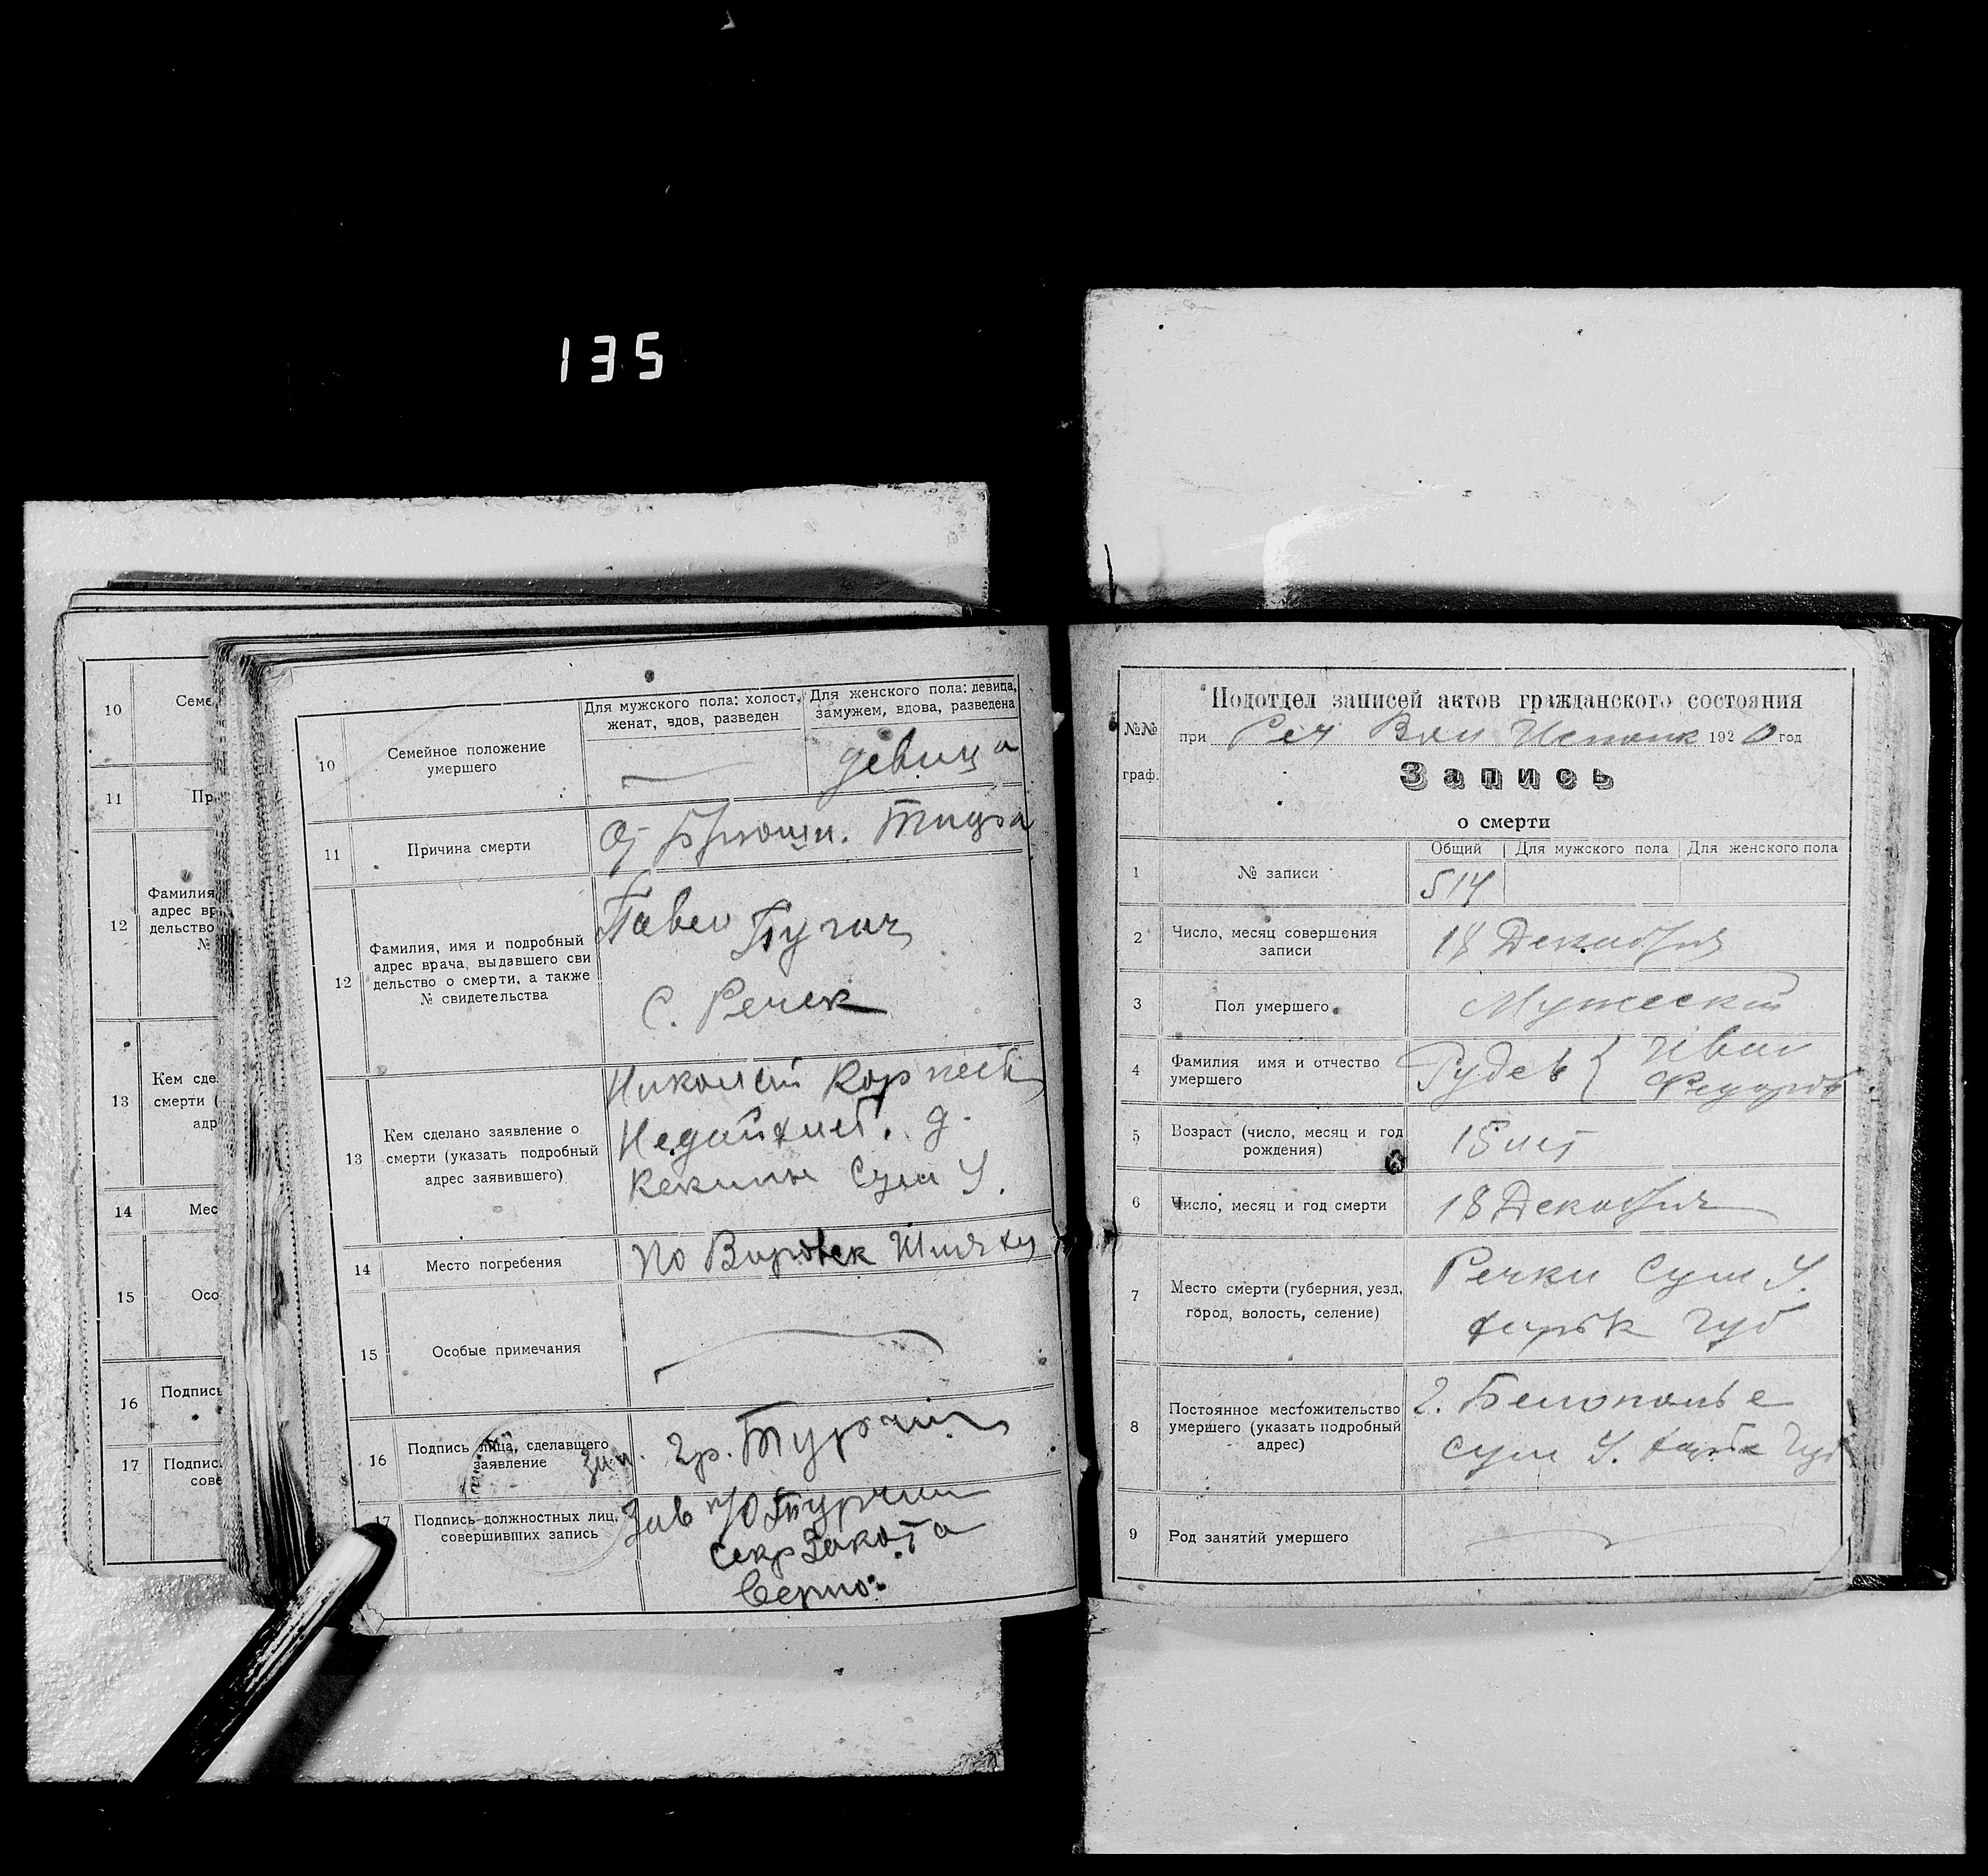 135
10
Семе
11
Пр
12
Фамилия
адрес вр
дельство
№
13
Кем сде
смерти (
адр
14
Мес
15
Осо
16
Подпись
17
Подпис
сове
Для мужского пола: холост, женат, вдов, разведен
Для женского пола: девица, замужем, вдова, разведена
10
Семейное положение
умершего
девица
11
Причина смерти
От Брюшн. Тифа
12
Фамилия, имя и подробный
адрес врача, выдавшего сви
дельство о смерти, а также
№ свидетельства
Павел
С. Речек
13
Кем сделано заявление о
смерти (указать подробный
адрес заявившего)
Николай
д.
Сум У.
14
Место погребения
по Шляху
15
Особые примечания
16
Подпись лица, сделавшего
заявление
гр. Турчин
17
Подпись должностных лиц,
совершивших запись
Зав п/о Турчин
Секр
Верно:
№№
граф.
Подотдел записей актов гражданского состояния
при Реч Вол Исполк 1920 год
Запись
о смерти
Общий
Для мужского пола
Для женского пола
1
№ записи
514
2
Число, месяц совершения
записи
18 Декабря
3
Пол умершего
Мужеский
4
Фамилия имя и отчество
умершего
Рудев Иван
Федоров
5
Возраст (число, месяц и год
рождения)
15 лет
6
Число, месяц и год смерти
18 Декабря
7
Место смерти (губерния, уезд,
город, волость, селение)
Речки Сум У.
Харьк губ
8
Постоянное местожительство
умершего (указать подробный
адрес)
г. Белополье
Сум У. Харьк Губ
9
Род занятий умершего